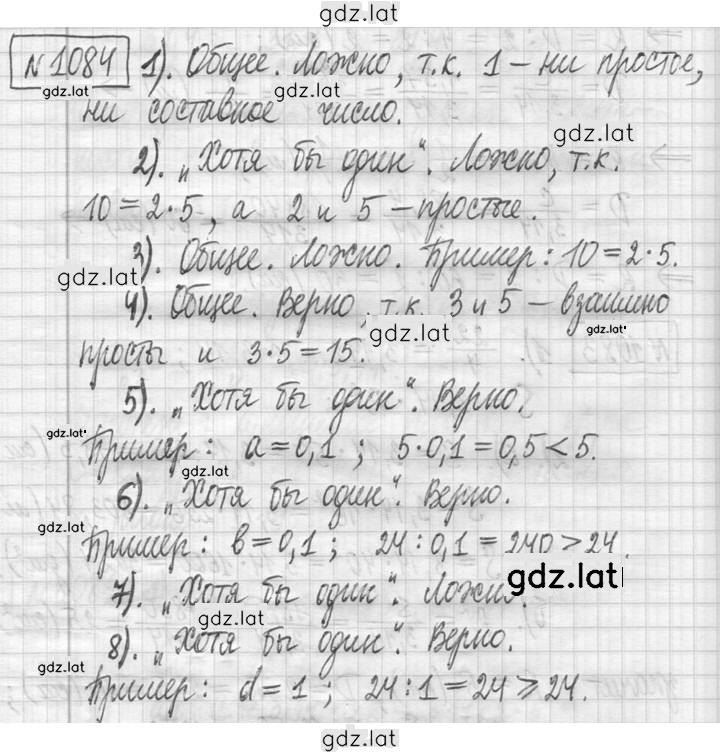 gdz.lat
N 1084 1). Общее. Ложно, т.к. 1 – ни простое,
gdz.lat gdz.lat
ни составное число.
gdz.lat
2). „Хотя бы один“. Ложно, т.к.
10 = 2·5, а 2 и 5 – простые.
3). Общее. Ложно. Пример: 10 = 2·5.
gdz.lat
4). Общее. Верно, т.к. 3 и 5 – взаимно
gdz.lat gdz.lat
просты и 3·5 = 15.
5). „Хотя бы один“. Верно.
gdz.lat
Пример: a = 0,1 ; 5·0,1 = 0,5 < 5.
gdz.lat
6). „Хотя бы один“. Верно.
gdz.lat
Пример: в = 0,1 ; 24 : 0,1 = 240 > 24.
gdz.lat
7). „Хотя бы один“. Ложно.
gdz.lat
8). „Хотя бы один“. Верно.
gdz.lat
Пример: d = 1 ; 24 : 1 = 24 ⩾ 24.
gdz.lat